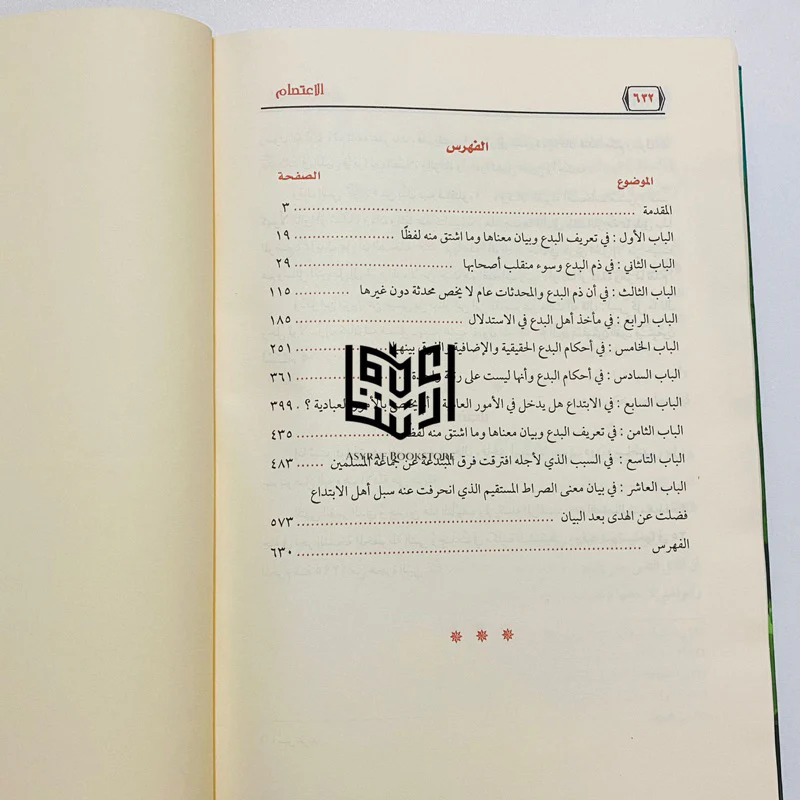 ٦٣٢ الاعتصام
الفهرس
الموضوع الصفحة
المقدمة ٣
الباب الأول : في تعريف البدع وبيان معناها وما اشتق منه لفظًا ١٩
الباب الثاني : في ذم البدع وسوء منقلب أصحابها ٢٩
الباب الثالث : في أن ذم البدع والمحدثات عام لا يخص محدثة دون غيرها ١١٥
الباب الرابع : في مأخذ أهل البدع في الاستدلال ١٨٥
الباب الخامس : في أحكام البدع الحقيقية والإضافية بينهما ٢٥١
الباب السادس : في أحكام البدع وأنها ليست على ٣٦١
الباب السابع : في الابتداع هل يدخل في الأمور العبادية ؟ ٣٩٩
الباب الثامن : في تعريف البدع وبيان معناها وما اشتق منه لفظًا ٤٣٥
ASYRAF BOOKSTORE
الباب التاسع : في السبب الذي لأجله افترقت فرق المبتدعة عن جماعة المسلمين ٤٨٣
الباب العاشر : في بيان معنى الصراط المستقيم الذي انحرفت عنه سبل أهل الابتداع
فضلت عن الهدى بعد البيان ٥٧٣
الفهرس ٦٣٠